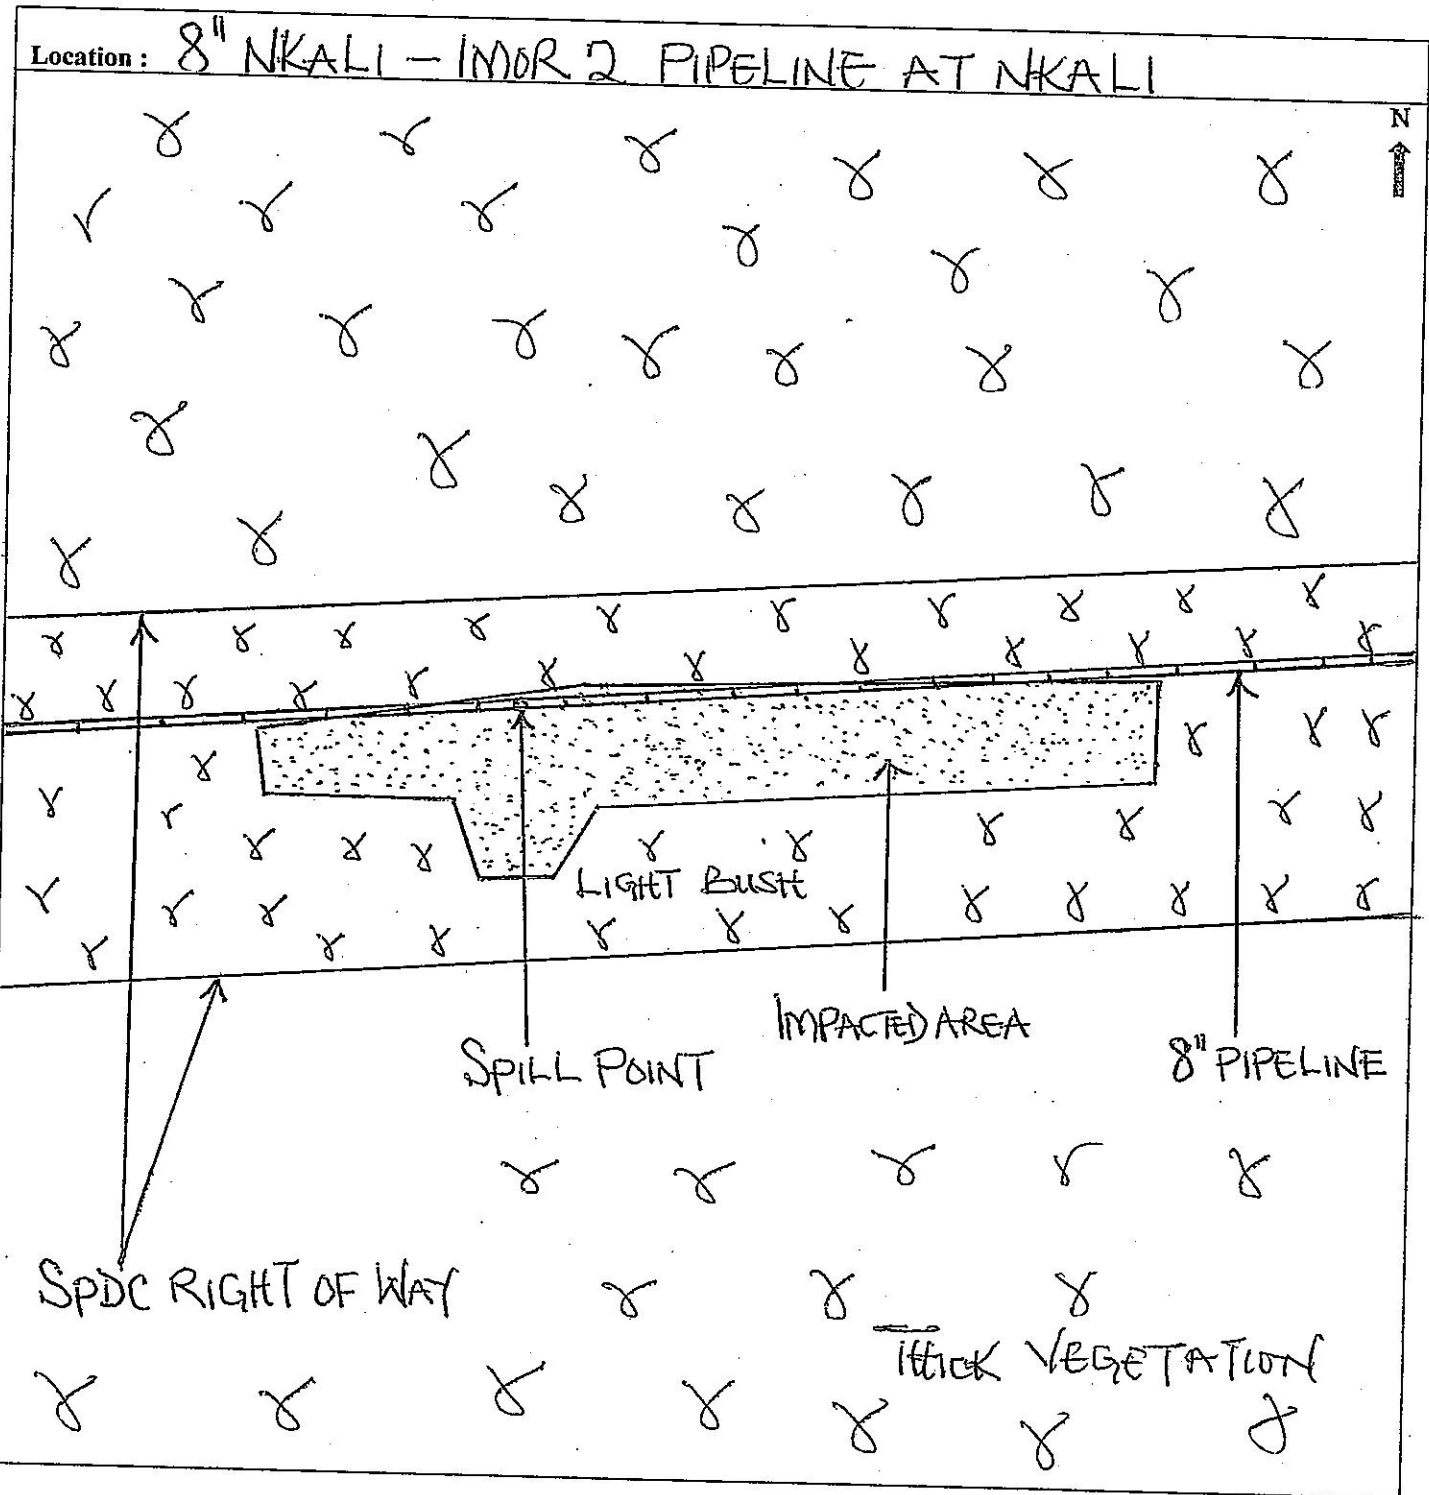 Location : 8" NKALI - IMOR 2 PIPELINE AT NKALI
N
LIGHT BUSH
IMPACTED AREA
SPILL POINT
8" PIPELINE
SPDC RIGHT OF WAY
THICK VEGETATION